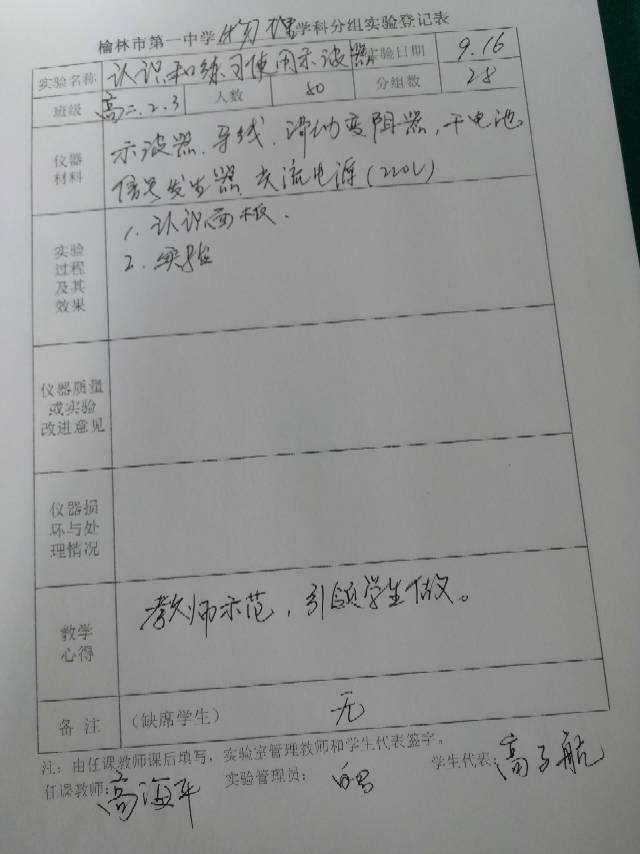 榆林市第一中学物理学科分组实验登记表
实验名称 认识和练习使用示波器 实验日期 9.16
班级 高二.2.3 人数 80 分组数 28
仪器材料 示波器、导线、滑动变阻器、干电池
信号发生器、交流电源(220V)
实验过程及其效果 1. 认识面板.
2. 实验
仪器质量或实验改进意见
仪器损坏与处理情况
教学心得 教师示范,引领学生做。
备注 (缺席学生) 无
注:由任课教师课后填写,实验室管理教师和学生代表签字。
任课教师:高海平 实验管理员: 学生代表:高子航